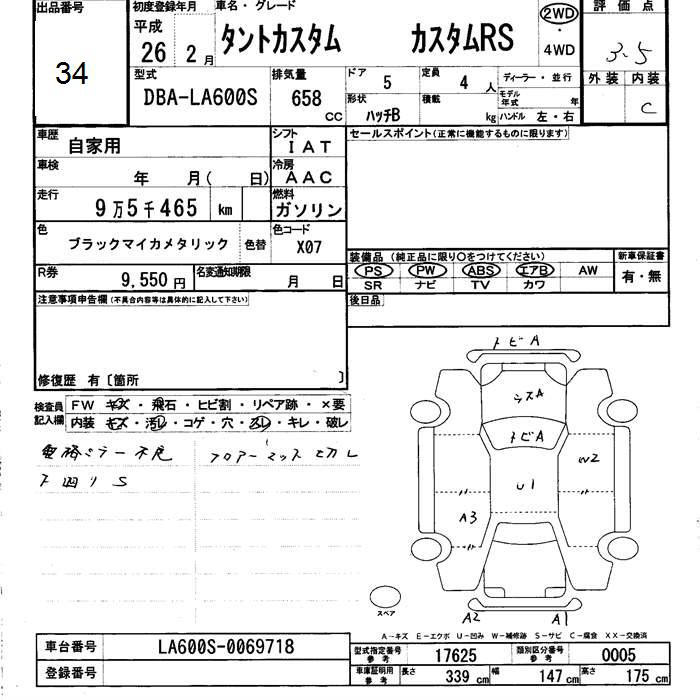 出品番号
34
初度登録年月
平成
26 2 月
車名・グレード
タントカスタム カスタムRS
2WD
・
4WD
評価点
3.5
外装 内装
C
型式
DBA-LA600S
排気量
658 CC
ドア 5
定員 4 人
形状 ハッチB
積載 kg
ディーラー・並行
モデル年式 年
ハンドル 左・右
車歴 自家用
シフト IAT
車検 年 月( 日)
冷房 AAC
走行 9万5千465 km
燃料 ガソリン
色 ブラックマイカメタリック 色替
色コード X07
R券 9,550 円
名変通知期限 月 日
セールスポイント(正常に機能するものに限ります)
装備品(純正品に限り○をつけてください)
PS PW ABS エアB AW
SR ナビ TV カワ
新車保証書
有・無
後日品
注意事項申告欄(不具合内容等は具体的に記入して下さい)
修復歴 有〔箇所 〕
検査員記入欄
FW キズ・飛石・ヒビ割・リペア跡・×要
内装 キズ・汚レ・コゲ・穴・スレ・キレ・破レ
電格ミラー不良
フロアーマット
下回りS
トビA
キズA
トビA
U1
W2
A3
A2
A1
スペア
A-キズ E-エクボ U-凹み W-補修跡 S-サビ C-腐食 XX-交換済
車台番号 LA600S-0069718
登録番号
型式指定番号 参考 17625
類別区分番号 参考 0005
車庫証明用 参考 長さ 339 cm 幅 147 cm 高さ 175 cm